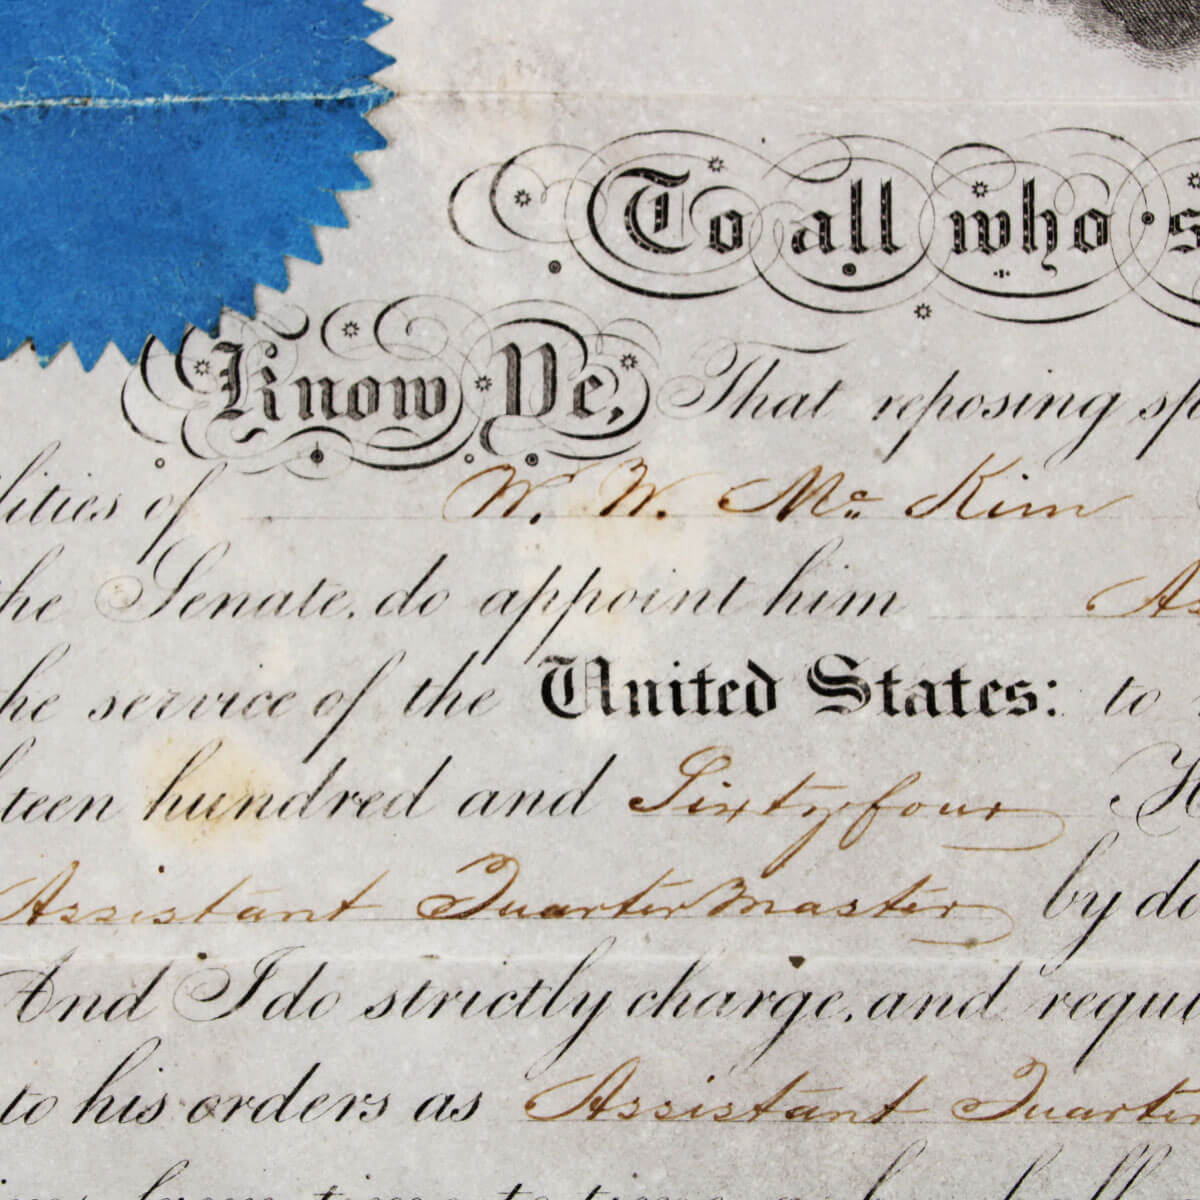 To all who s
Know Ye, That reposing sp
lities of W. W. Mc Kim
he Senate, do appoint him As
he service of the United States: to
teen hundred and Sixtyfour H
Assistant Quarter Master by do
And I do strictly charge, and requi
to his orders as Assistant Quarter
from time to time